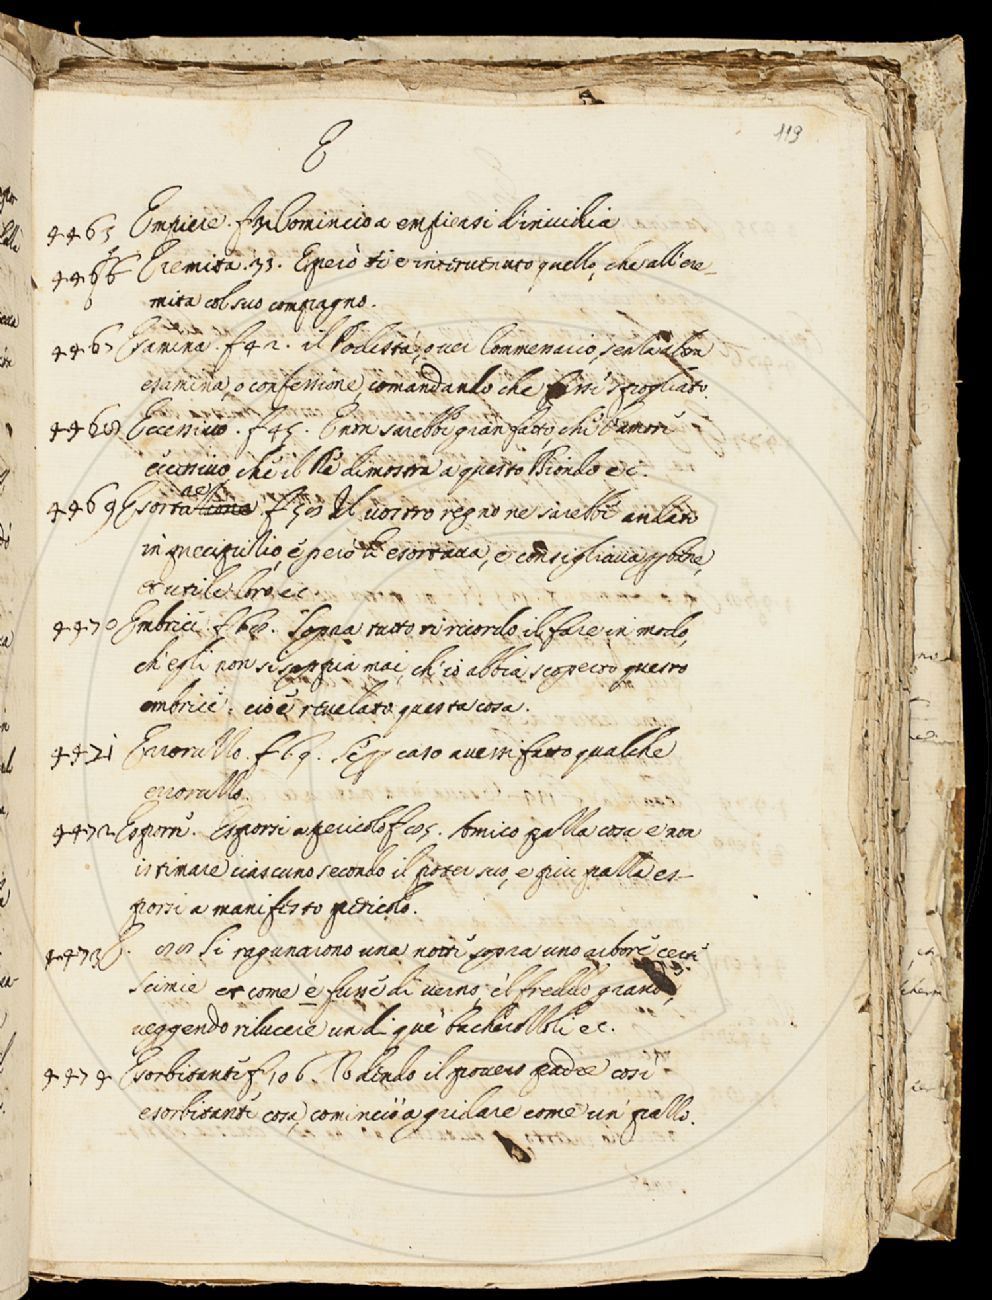 E
119
4465 Empiere. f. Cominciò a empiersi d'invidia
4466 Eremita. 33. E però ti è intervenuto quello, che all'ere-
mita col suo compagno.
4467 Esamina. f 42. il Podestà, ò ver Commenario, senza altra
esamina, o confessione, comandando che fussi spogliato.
4468 Eccessivo. f 45. E non sarebbe gran fatto, che l'amore
eccessivo che il Re dimostra a questo Biondo ec.
4469 Esortare f 58 Il vostro regno ne sarebbe andato
in precipitio, e però li esortava, e consigliava pp bene,
et utile loro ec.
4470 Embrice f 68. Sopra tutto ti ricordo il fare in modo,
ch'egli non si sappia mai, ch'io abbia scoperto questo
embrice: cioè rivelato questa cosa.
4471 Erroruzzo. f 69. Se pp caso avessi fatto qualche
erroruzzo.
4472 Esporre. Esporsi a pericolo f 85. Amico gatta cosa e non
istimare ciascuno secondo il poter suo, e più gatta es-
porsi a manifesto pericolo.
4473 E. 88 Si ragunarono una notte sopra uno arbore certe
Scimie et come è fusse di verno, e'l freddo grande,
veggendo rilucere un di que' bacherozzoli ec.
4474 Esorbitante f 106. Vedendo il povero padre così
esorbitante cosa, cominciò a gridare come un pazzo.